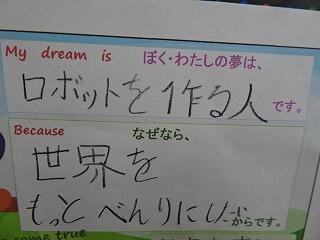 My dream is ぼく・わたしの夢は、
ロボットを作る人です。
Because なぜなら、
世界を
もっとべんりにしたいからです。
come true